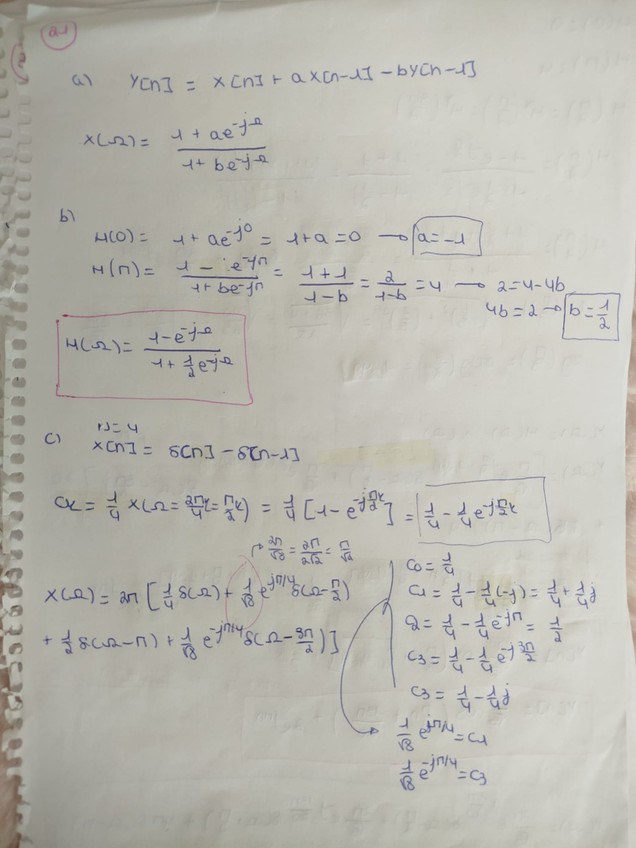 21
a) Y[n] = X[n] + aX[n-1] - bY[n-1]
X(Ω) = (1 + ae^-jΩ)/(1 + be^-jΩ)
b)
H(0) = 1 + ae^-j0 = 1+a = 0 → a = -1
H(π) = (1 - e^-jπ)/(1 + be^-jπ) = (1+1)/(1-b) = 2/(1-b) = 4 → 2 = 4-4b
4b = 2 → b = 1/2
H(Ω) = (1 - e^-jΩ)/(1 + 1/2 e^-jΩ)
N = 4
c) X[n] = δ[n] - δ[n-1]
Ck = 1/4 X(Ω = 2πk/4 = πk/2) = 1/4 [1 - e^-jπ/2 k] = 1/4 - 1/4 e^-jπ/2 k
→ 2π/√8 = 2π/2√2 = π/√2
X(Ω) = 2π [1/4 δ(Ω) + 1/√8 e^jπ/4 δ(Ω - π/2)
+ 1/2 δ(Ω - π) + 1/√8 e^-jπ/4 δ(Ω - 3π/2)]
C0 = 1/4
C1 = 1/4 - 1/4(-j) = 1/4 + 1/4 j
C2 = 1/4 - 1/4 e^-jπ = 1/2
C3 = 1/4 - 1/4 e^-j3π/2
C3 = 1/4 - 1/4 j
1/√8 e^jπ/4 = C1
1/√8 e^-jπ/4 = C3